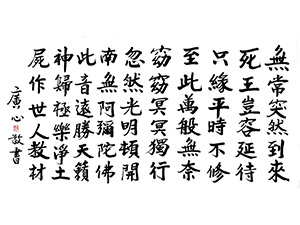 無常突然到來
死王豈容延待
只緣平時不修
至此萬般無奈
窈窈冥冥獨行
忽然光明頓開
南無阿彌陀佛
此音遠勝天籟
神歸極樂淨土
屍作世人教材
廣心敬書